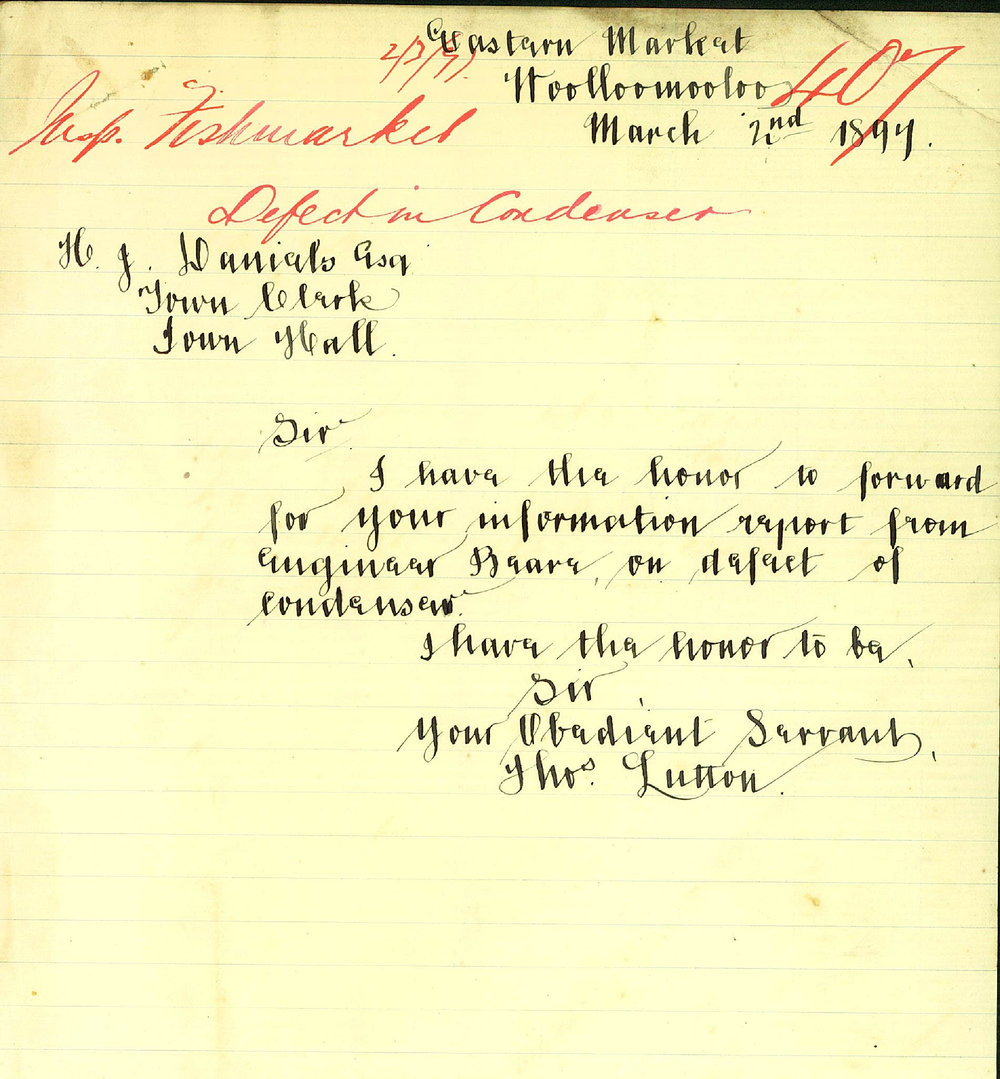 Eastern Market
2/3/97.
Woolloomooloo
407
Insp. Fishmarket
March 2nd 1897.
Defect in Condenser
H. J. Daniels Esq
Town Clerk
Town Hall.
Sir
I have the honor to forward
for your information report from
Engineer Beare, on defect of
condenser.
I have the honor to be,
Sir,
Your Obedient Servant,
Thos. Lutton.